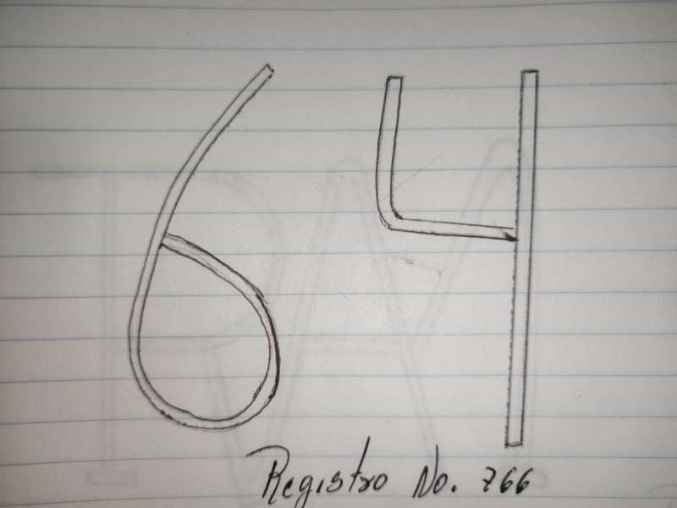 64
Registro No. 766